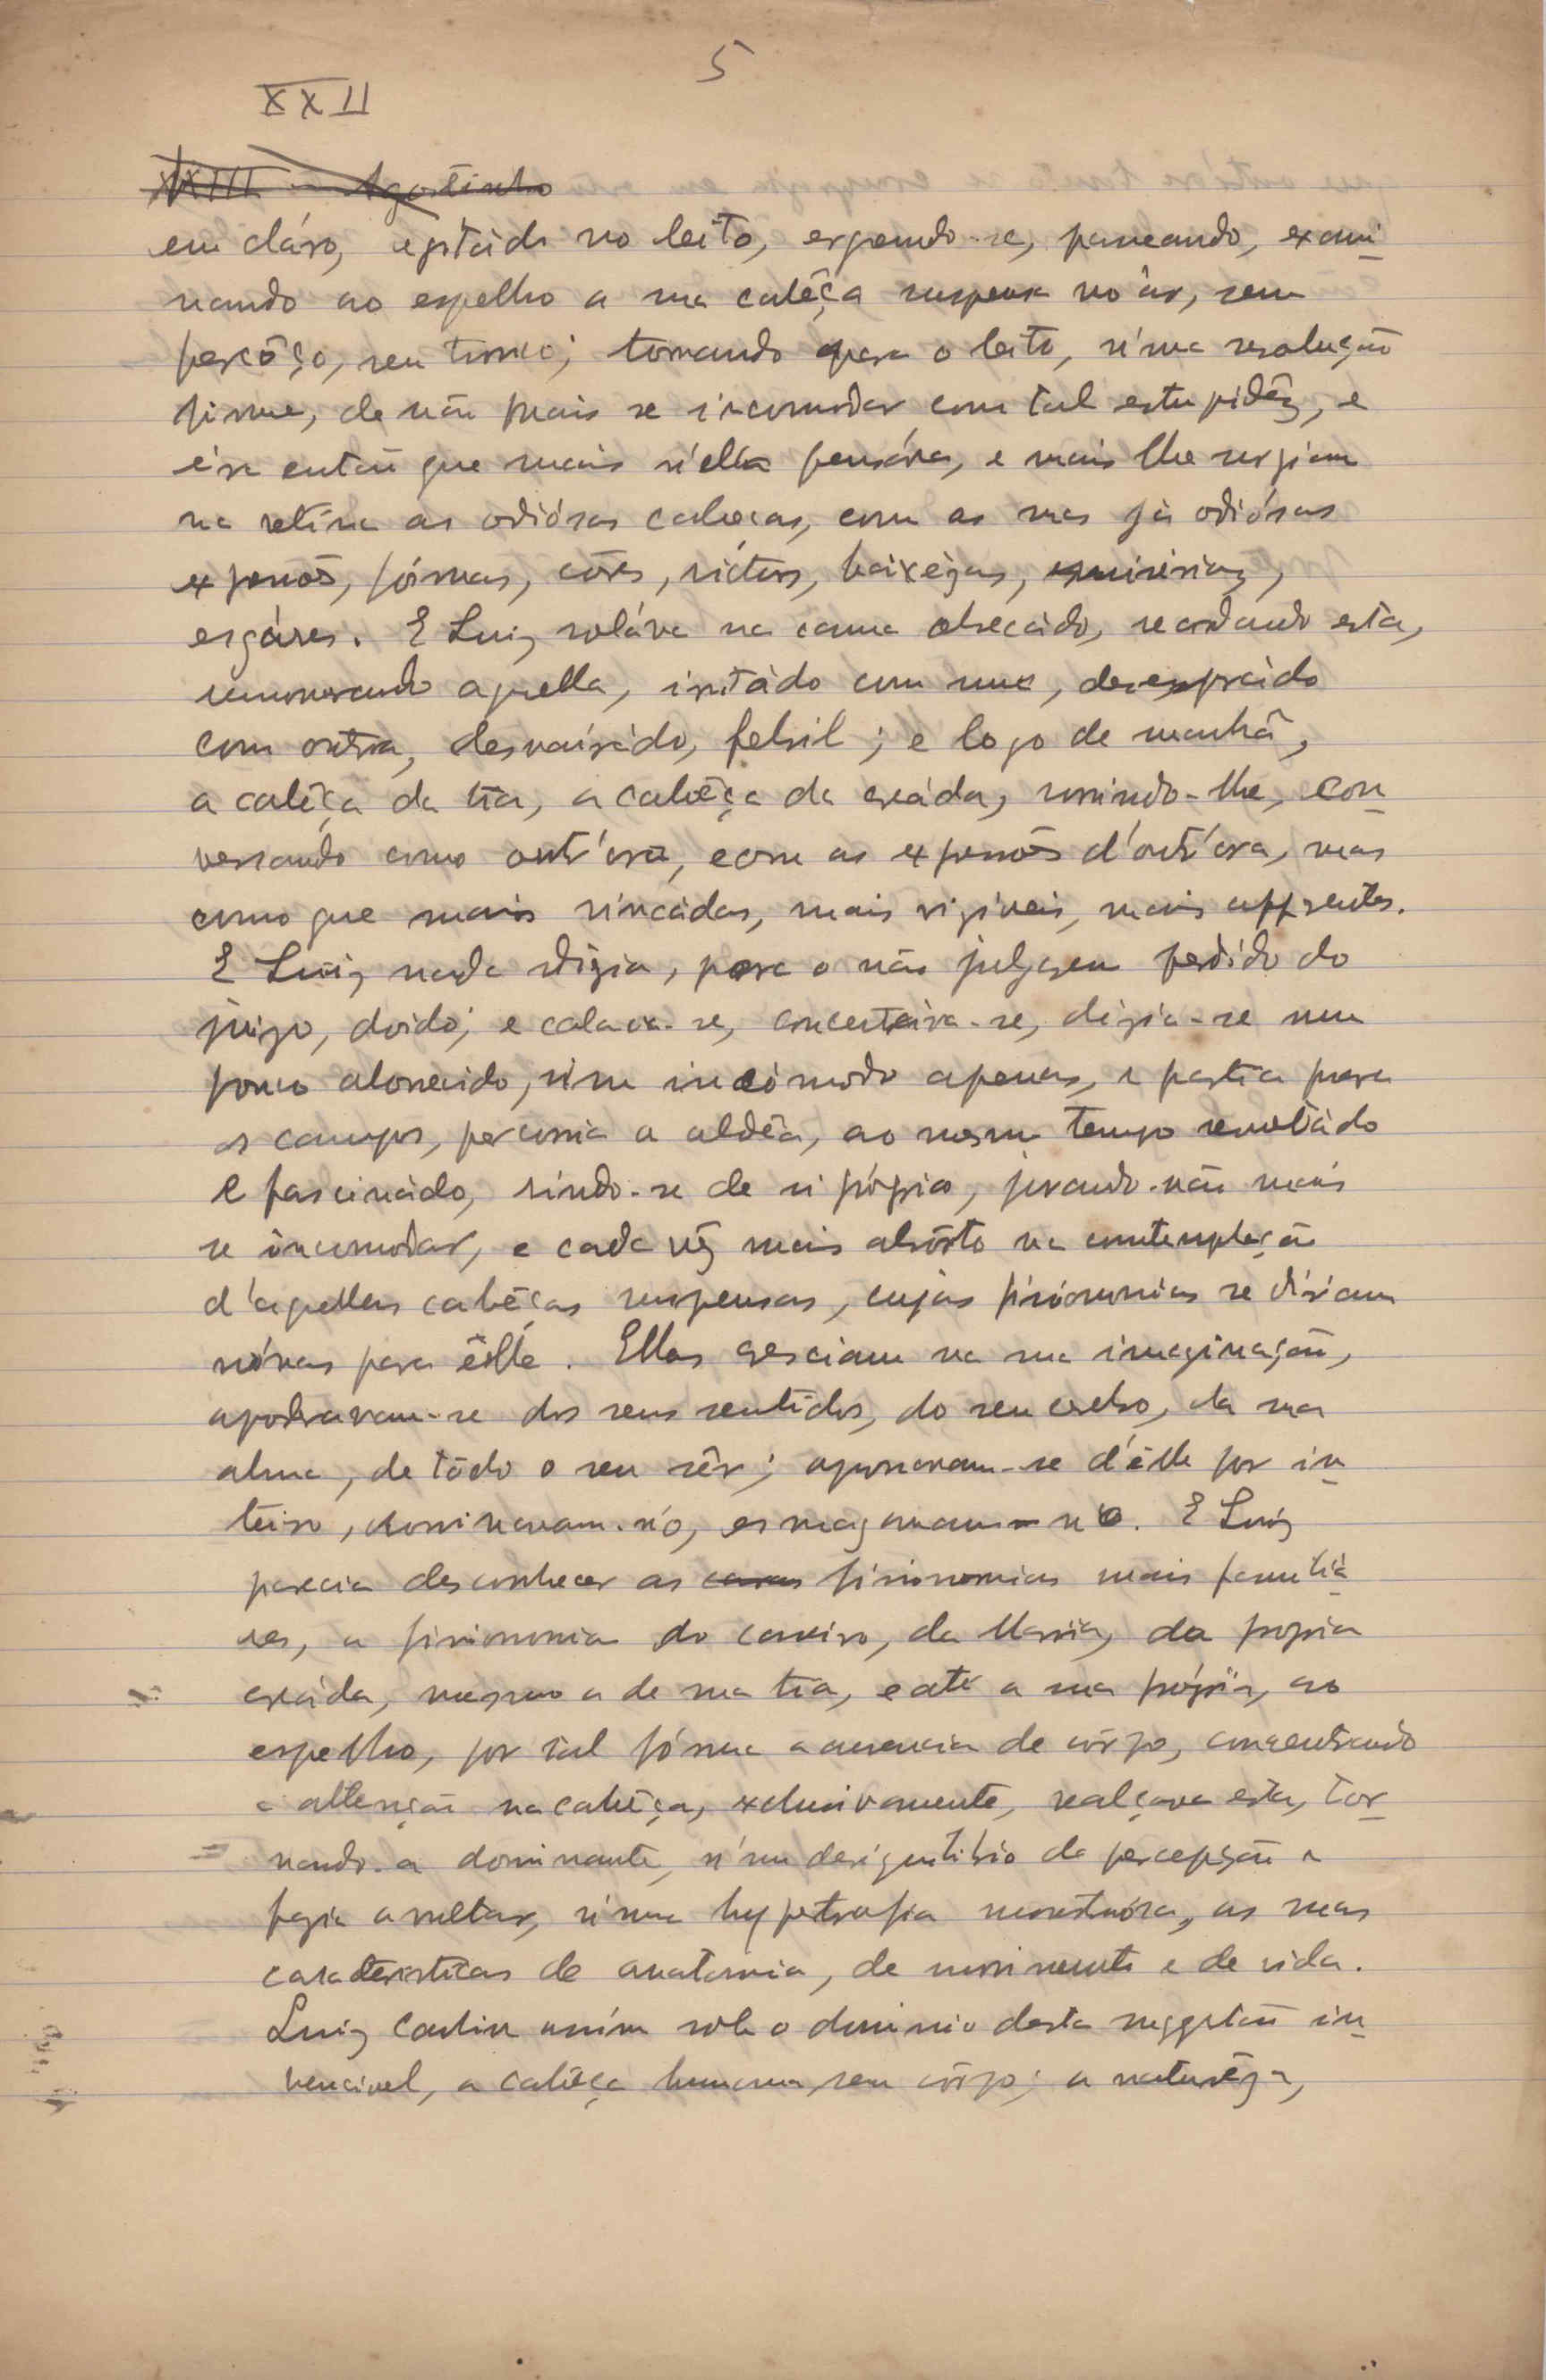 5
XXII
XXIII – Agostinho
em cláro, agitádo no leito, erguendo-se, passeando, exami
nando ao espelho a sua cabêça suspensa no ár, sem
pescôço, sem tronco; tornando para o leito, n'uma resolução
firme, de não mais se incomodar com tal estupidêz, e
éra entaõ que mais n'ella pensáva, e mais lhe surgiam
na retina as odiósas cabeças, com as suas já odiósas
expressões, fórmas, côres, rictus, baixêzas, misérias,
esgáres. E Luiz roláva na cama obsecádo, recordando esta,
rememorando aquella, irritádo com uma,
com outra, desvairádo, febril; e logo de manhã,
a cabêça da tia, a cabêça da creáda, sorrindo-lhe, con
versando como outr'óra, com as expressões d'outr'óra, mas
como que mais vincádas, mais visiveis, mais
E Luiz nada dizia, para o não julgarem perdido do
juizo, doido; e calava-se, concertáva-se, dizia-se um
pouco aborrecido, n'um incómodo apenas, e partia para
os campos, percorria a aldêa, ao mesmo tempo revoltádo
e fascinádo, rindo-se de si próprio, jurando não mais
se incomodar, e cada vêz mais absôrto na contemplação
d'aquellas cabêças suspensas, cujas fisionomias se diriam
nóvas para êlle. Ellas cresciam na sua imaginação,
apoderavam-se dos seus sentidos, do seu cerebro, da sua
alma, de tôdo o seu sêr; apossavam-se d'êlle por in
teiro, dominavam-n'o, esmagavam-n'o. E Luiz
parecia desconhecer as caras fisionomias mais familiá
res, a fisionomia do caseiro, da Maria, da propria
creáda, mesmo a de sua tia, e até a sua própria, ao
espelho, por tal fórma a ausencia de côrpo, concentrando
a attenção na cabêça, exclusivamente, realçava esta, tor
nando-a dominante, n'um desiquilibrio da percepção e
fazia avultar, n'uma hypertrofia monstruósa, as suas
caracteristicas de anatomia, de movimento e de vida.
Luiz assim sob o dominio desta suggestão in
vencivel, a cabêça humana sem côrpo; a naturêza,